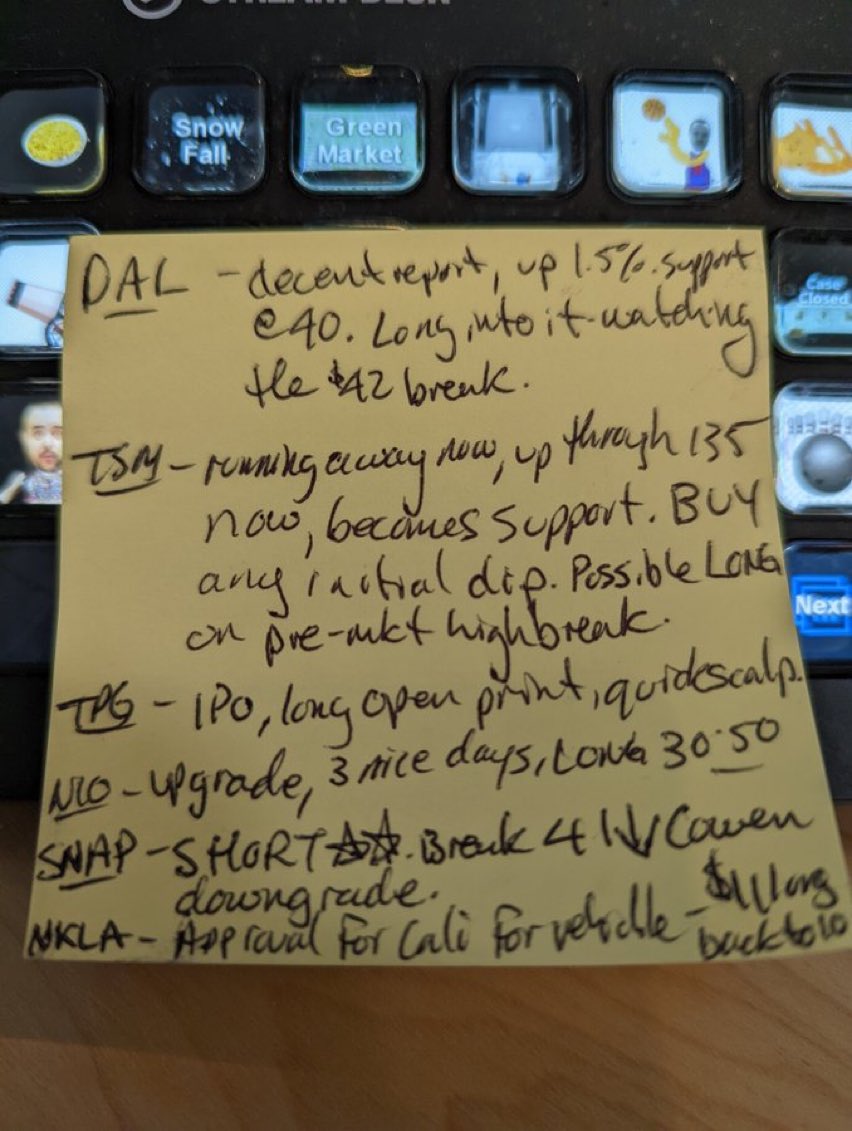 STREAM DECK
Snow
Fall
Green
Market
Case
Closed
Next
DAL - decent report, up 1.5%. support
@40. Long into it - watching
the $42 break.
TSM - running away now, up through 135
now, becomes support. BUY
any initial dip. Possible LONG
on pre-mkt high break.
TPG - IPO, long open print, quick scalp.
NIO - upgrade, 3 nice days, LONG 30.50
SNAP - SHORT☆☆. Break 41↓ Cowen
downgrade.
NKLA - Approval For Cali For vehicle - $11 long
back to 10